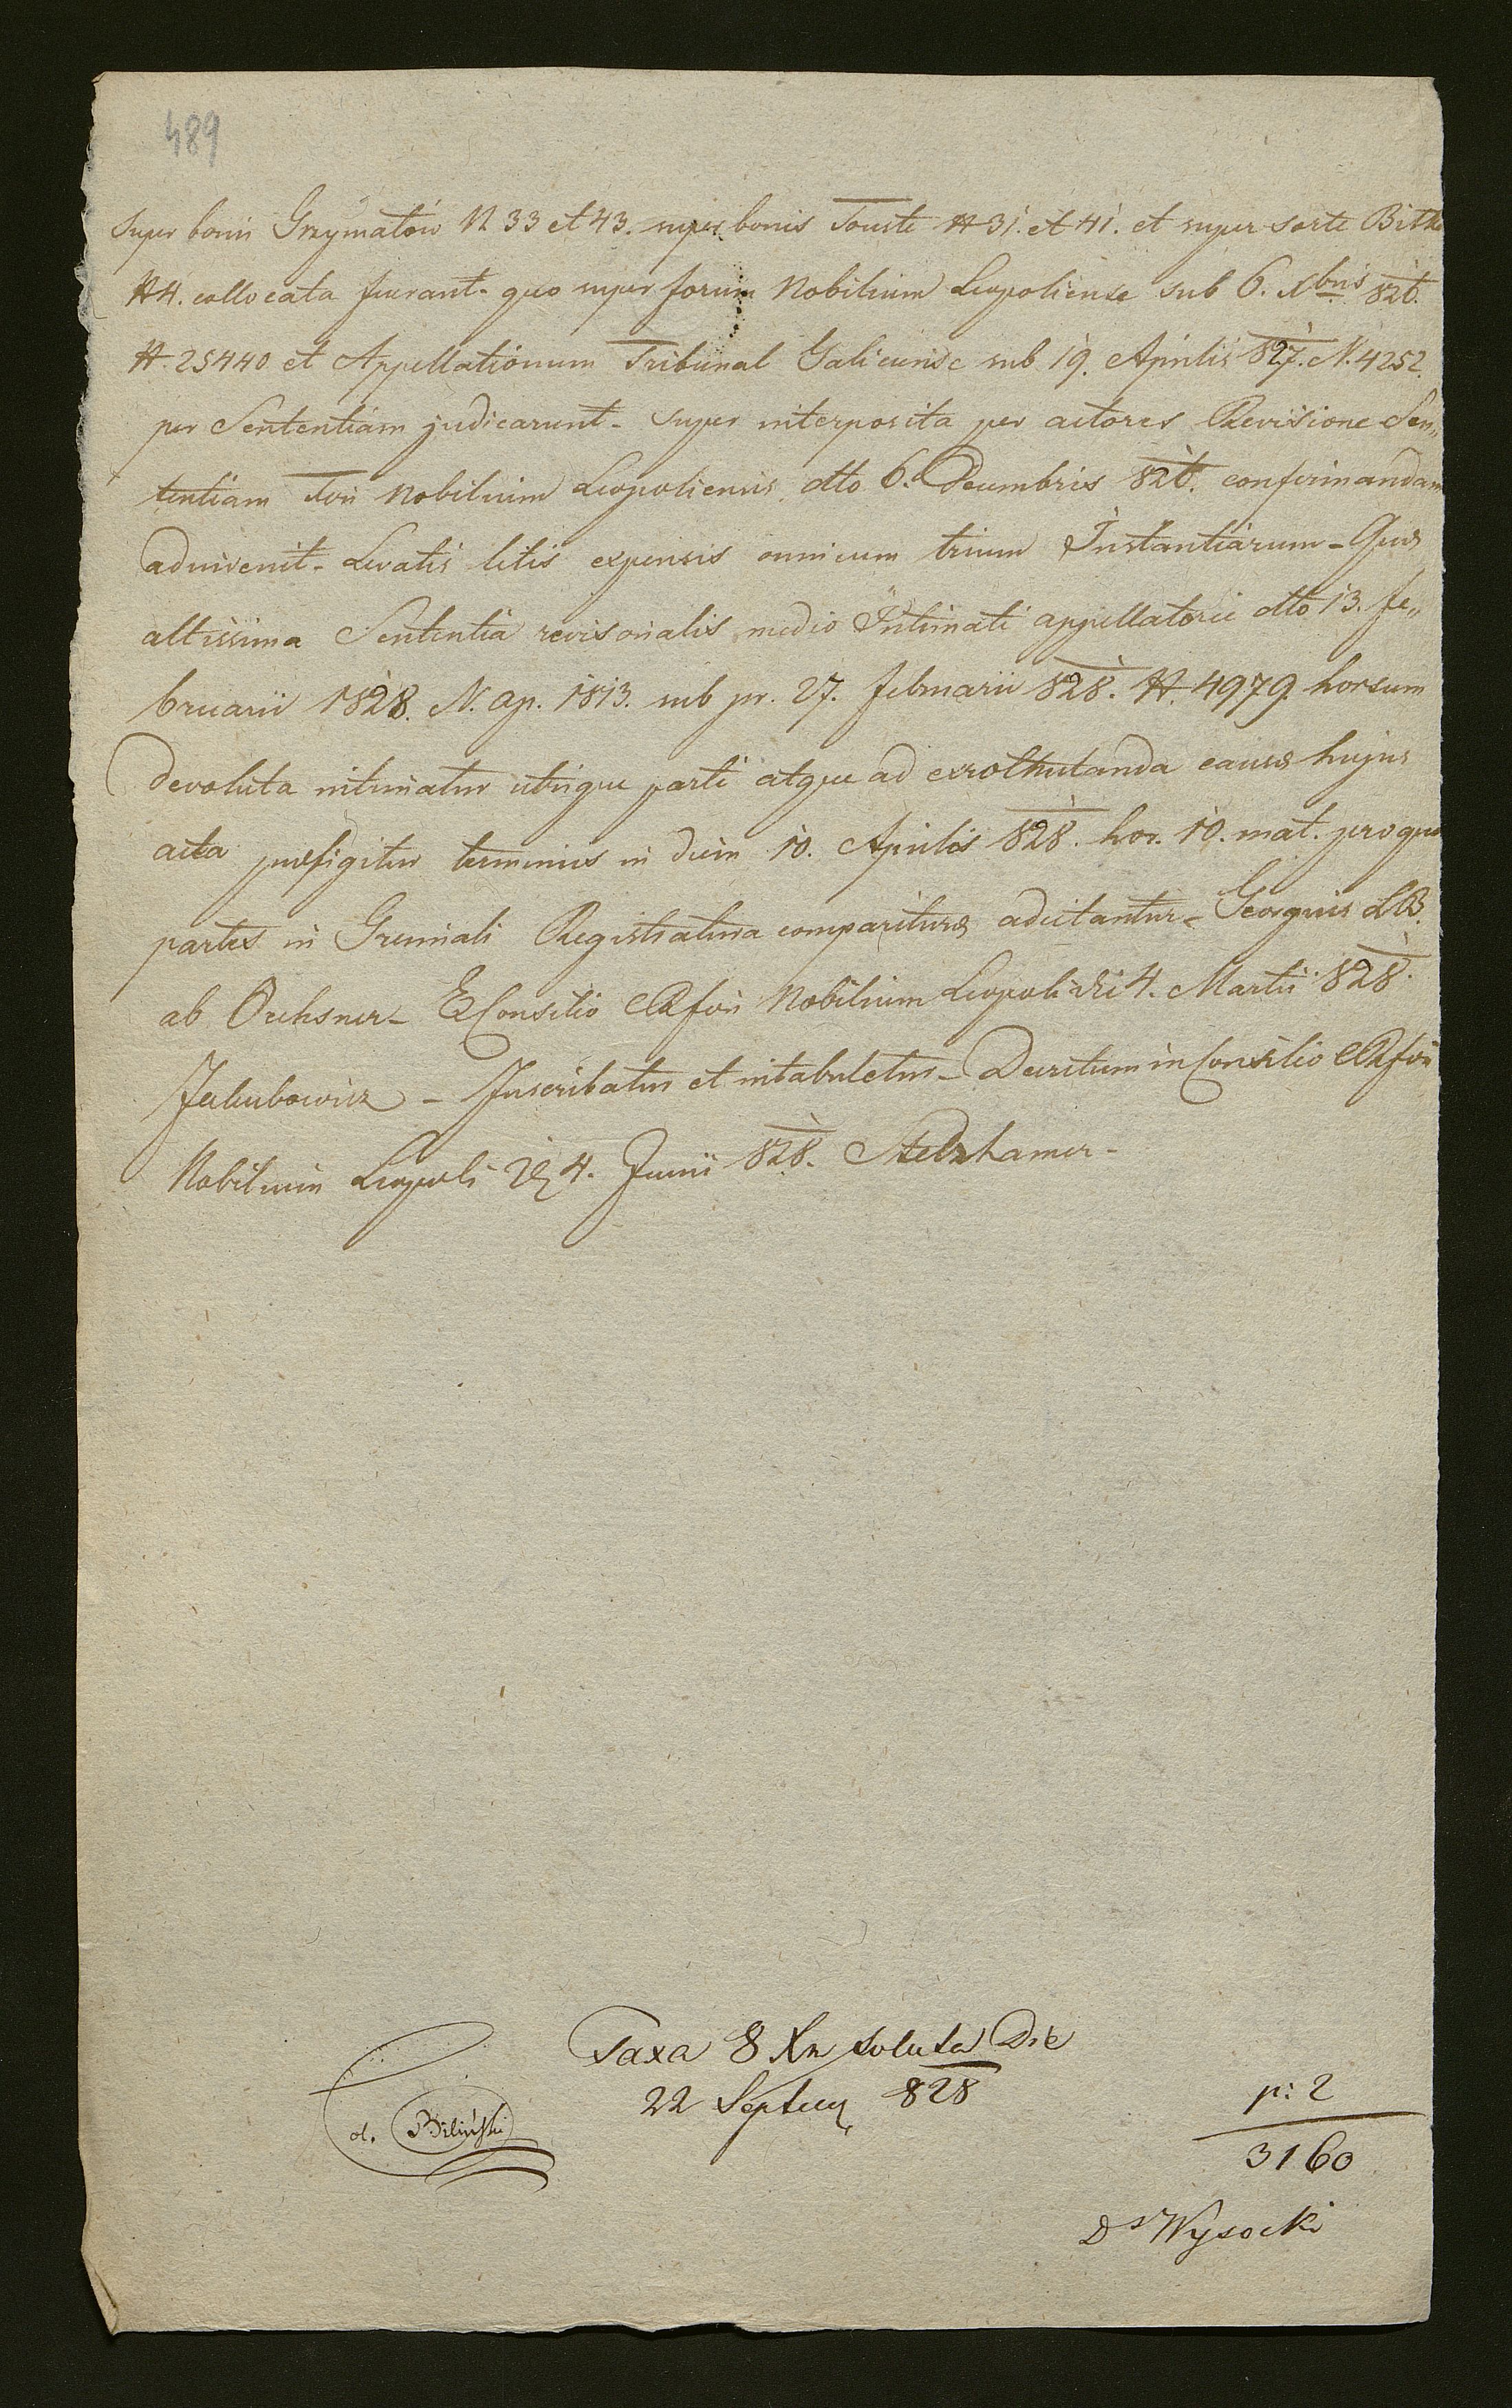 489
super bonis Grzymałów N 33 et 43. super bonis Touste N 31. et 41. et super sorte Bitk
N 4. collocata fuerant - quo super forum Nobilium Leopoliense sub 6. Xbris 826.
N. 25440 et Appellationum Tribunal Galiciense sub 19. Aprilis 827. N. 4252.
per Sententiam judicarunt - super interposita per actores Revisione Sen„
tentiam Fori Nobilium Leopoliensis dtto 6. Decembris 826. confirmandam
adinvenit - Levatis litis expensis omnium trium Instantiarum - Quae
altissima Sententia revisorialis medio Intimati appellatorii dtto 13. Fe„
bruarii 1828. N. ap. 1813. sub pr. 27. februarii 828. N. 4979. horsum
devoluta intimatur utrique parti atque ad exrotulanda causae hujus
acta praefigitur terminus in diem 10. Aprilis 828. hor. 10. mat. pro quo
partes in Gremiali Registratura compariturae adcitantur - Georgius LB.
ab Oechsner - Ex Consilio CR fori Nobilium Leopoli die 4. Martii 828.
Jakubowicz - Inscribatur et intabuletur - Decretum in Consilio CR fori
Nobilium Leopoli die 4. Junii 828. Stelzhamer -
Taxa 8 Xr soluta Die
22 Septem 828
p: 2
d. Biliński
3160
Ds Wysocki